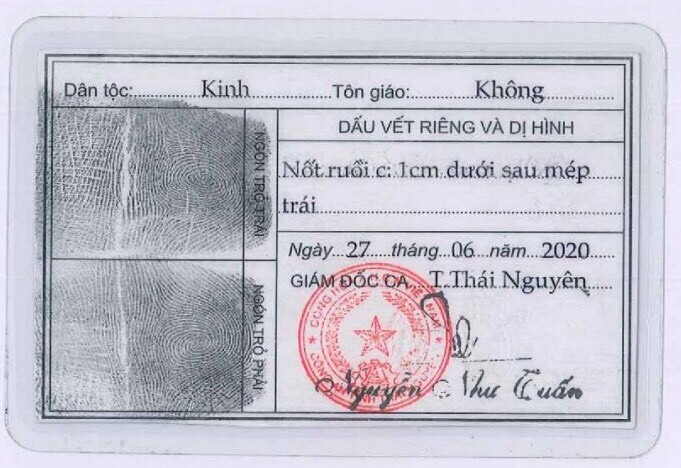 Dân tộc: Kinh Tôn giáo: Không
DẤU VẾT RIÊNG VÀ DỊ HÌNH
NGÓN TRỎ TRÁI
Nốt ruồi c: 1cm dưới sau mép
trái
Ngày 27 tháng 06 năm 2020
GIÁM ĐỐC CA T.Thái Nguyên
NGÓN TRỎ PHẢI
Nguyễn Như Tuấn